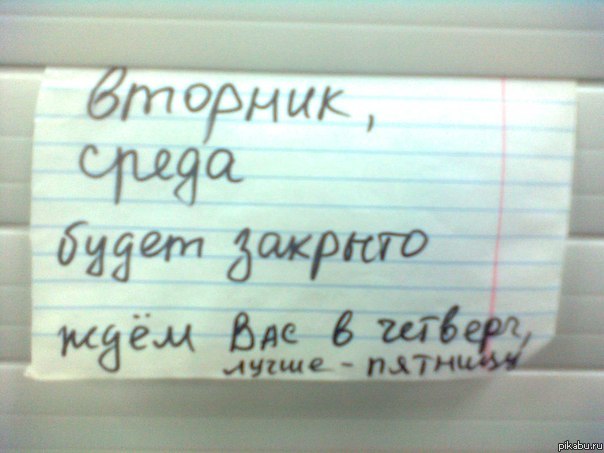 вторник,
среда
будет закрыто
ждём ВАС в четверг,
лучше - пятницу
pikabu.ru